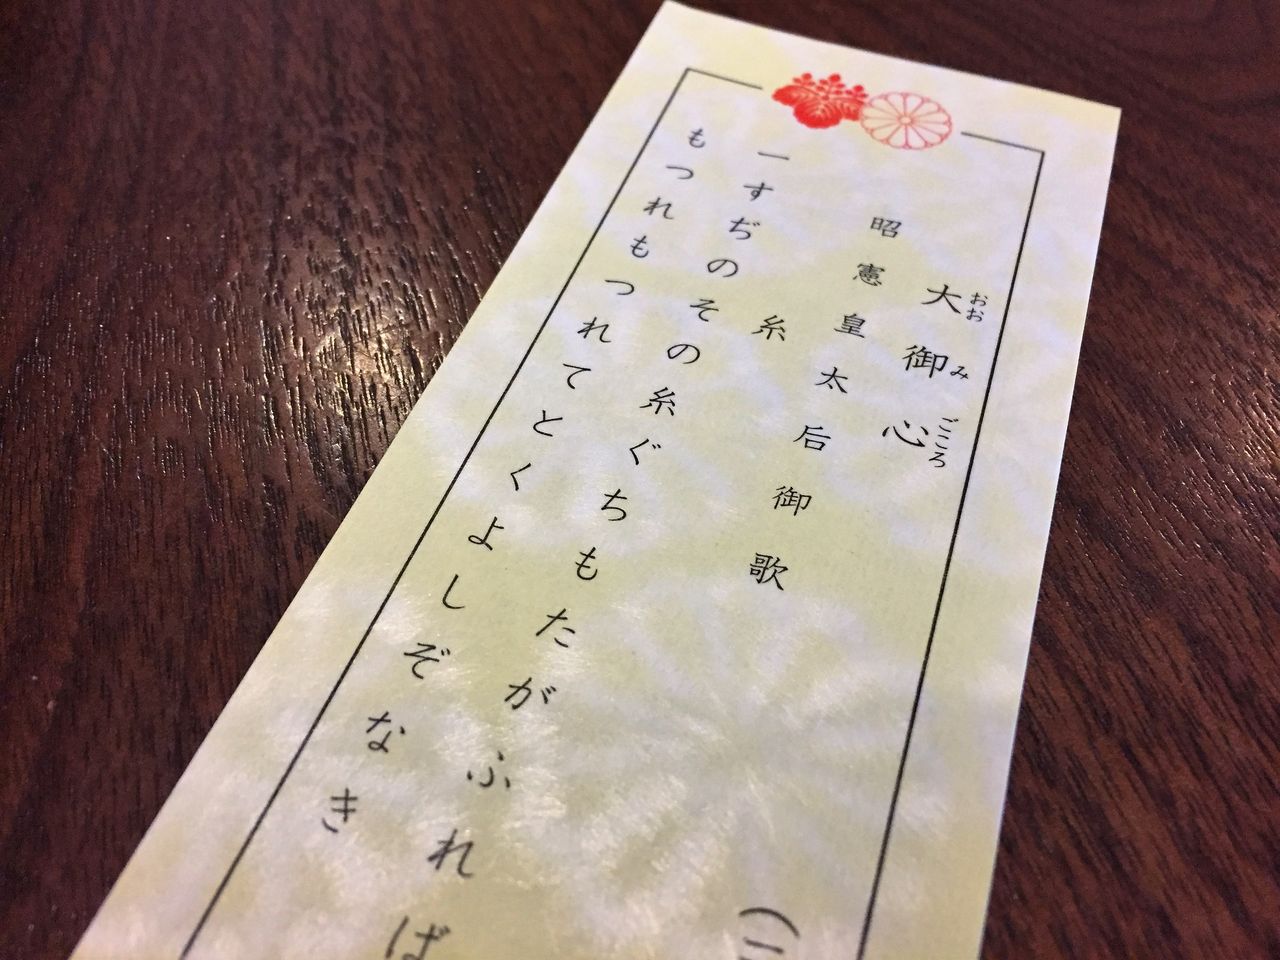 大御心
おおみごころ
昭憲皇太后御歌
糸
一すぢのその糸ぐちもたがふれば
もつれもつれてとくよしぞなき